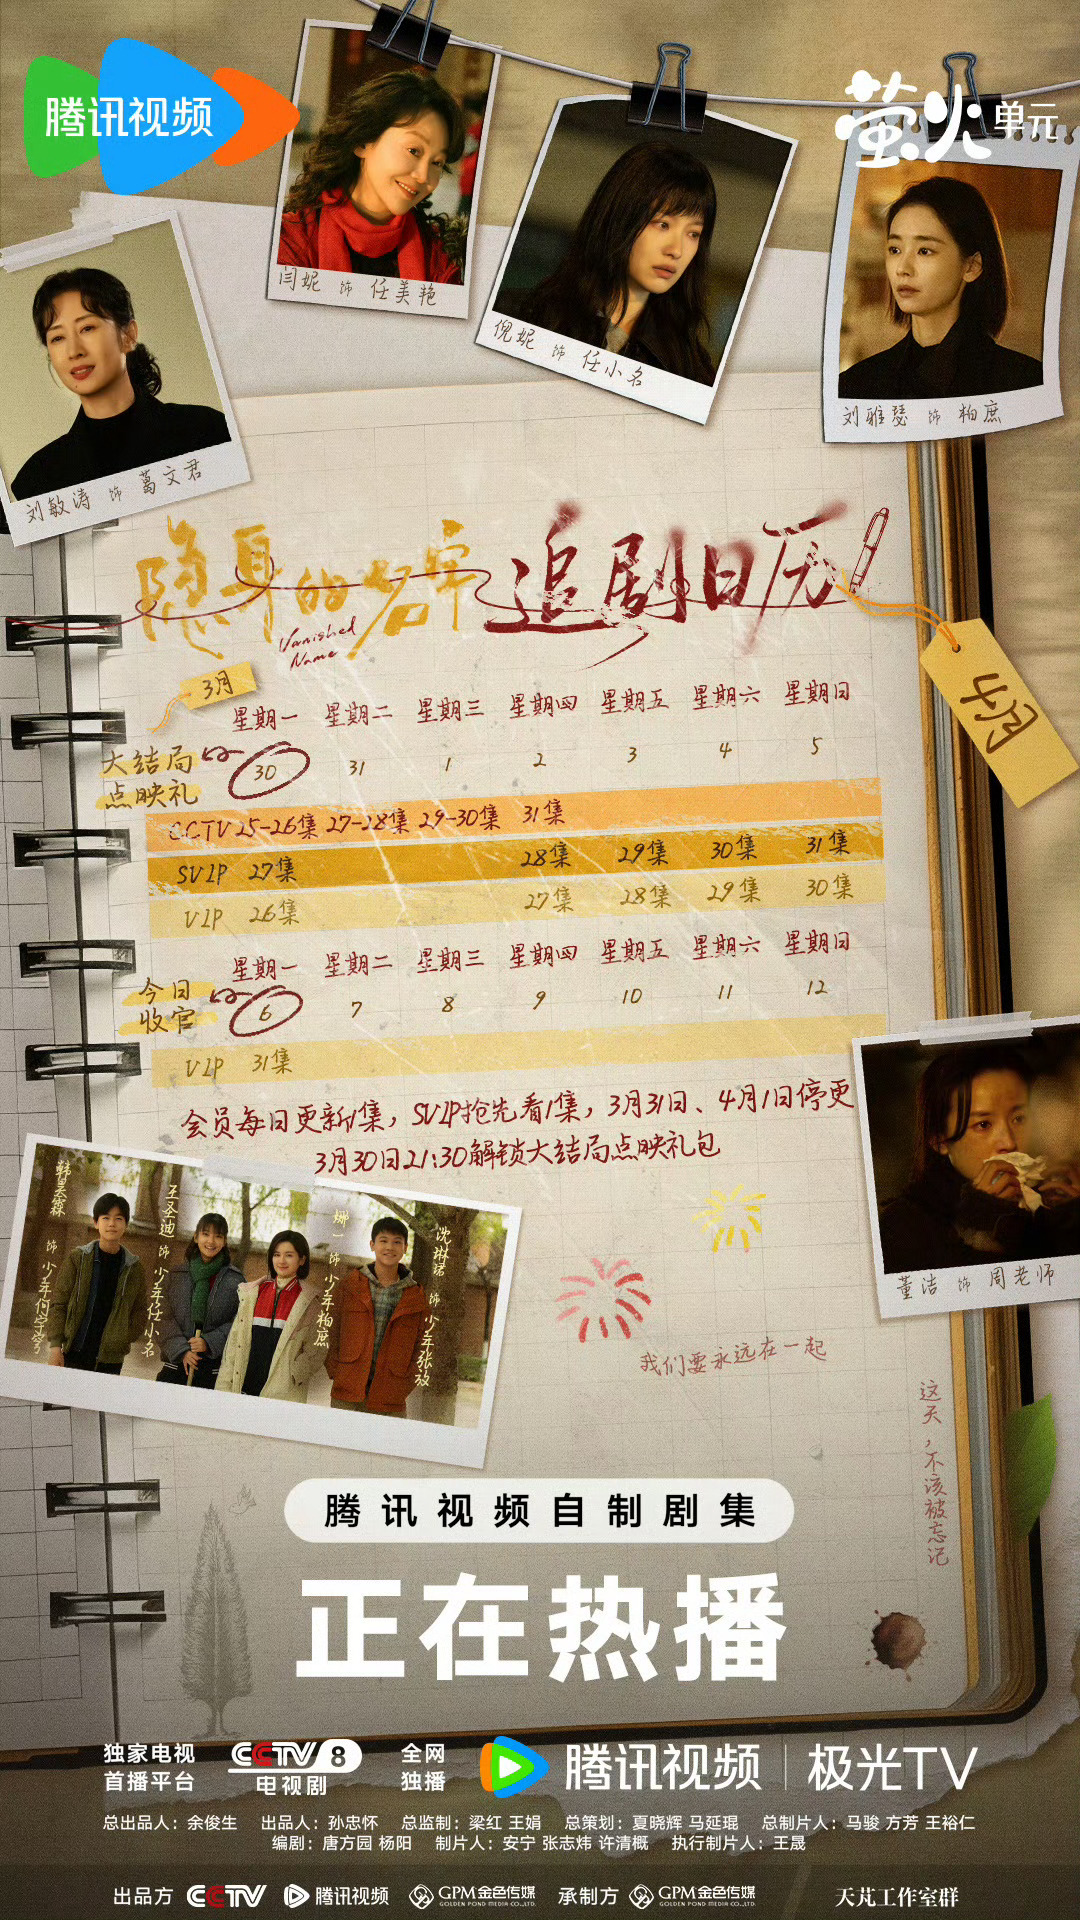 腾讯视频
萤火单元
闫妮 饰 任美艳
倪妮 饰 任小名
刘雅瑟 饰 柏庶
刘敏涛 饰 葛文君
隐身的名字 追剧日历
Vanished
Name
3月
4月
星期一 星期二 星期三 星期四 星期五 星期六 星期日
大结局
点映礼
30 31 1 2 3 4 5
CCTV 25-26集 27-28集 29-30集 31集
SVIP 27集 28集 29集 30集 31集
VIP 26集 27集 28集 29集 30集
星期一 星期二 星期三 星期四 星期五 星期六 星期日
今日
收官
6 7 8 9 10 11 12
VIP 31集
会员每日更新1集，SVIP抢先看1集，3月31日、4月1日停更
3月30日21:30解锁大结局点映礼包
韩昊霖 饰 少年何宇穹
王圣迪 饰 少年任小名
娜一 饰 少年柏庶
沈琳诺 饰 少年张放
董洁 饰 周老师
我们要永远在一起
这天，不该被忘记
腾讯视频自制剧集
正在热播
独家电视
首播平台
CCTV 8
电视剧
全网
独播
腾讯视频 | 极光TV
总出品人：余俊生 出品人：孙忠怀 总监制：梁红 王娟 总策划：夏晓辉 马延琨 总制片人：马骏 方芳 王裕仁
编剧：唐方园 杨阳 制片人：安宁 张志炜 许清概 执行制片人：王晟
出品方 CCTV 腾讯视频 GPM金色传媒 GOLDEN POND MEDIA CO.,LTD 承制方 GPM金色传媒 GOLDEN POND MEDIA CO.,LTD 天芃工作室群